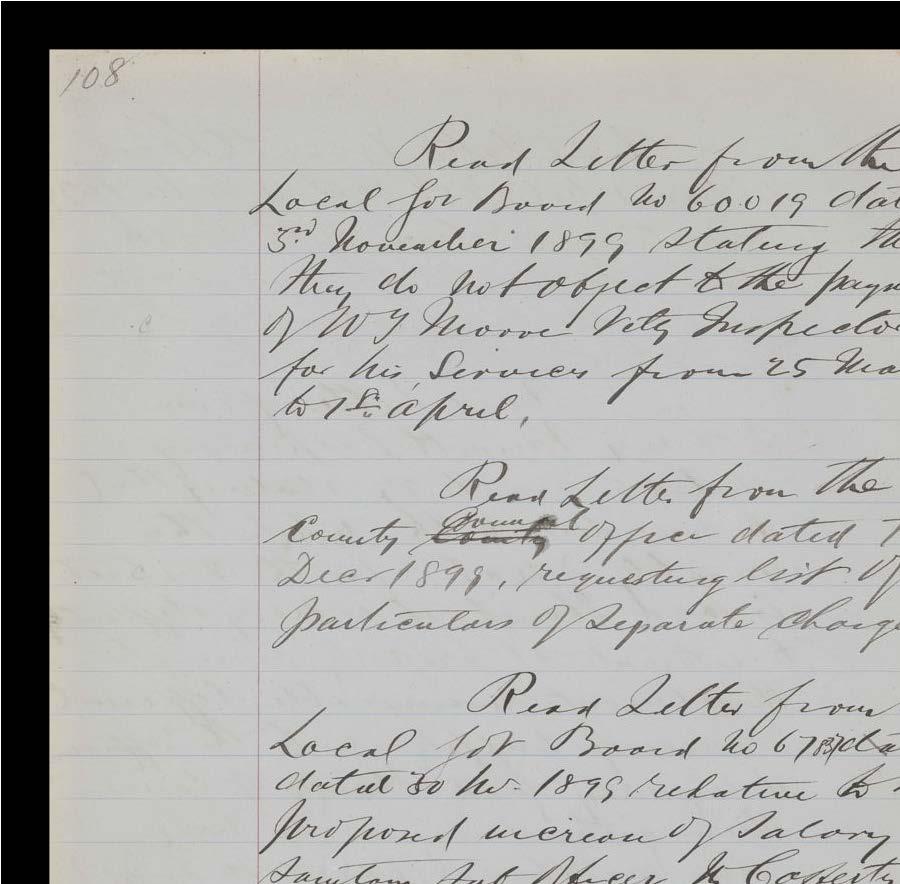 108
Read Letter from the
Local Gov Board No 60019 dat
3rd November 1899 stating th
they do not object to the paym
of W J Moore Vety Inspecto
for his Services from 25 Ma
to 1st April.
Read Letter from the
County Council Office dated 7
Decr 1899, requesting list of
particulars of separate charge
Read Letter from
Local Gov Board No 67837 da
dated 30 Nv. 1899 relative to
proposed increase of Salary
Sanitary Sub Officer